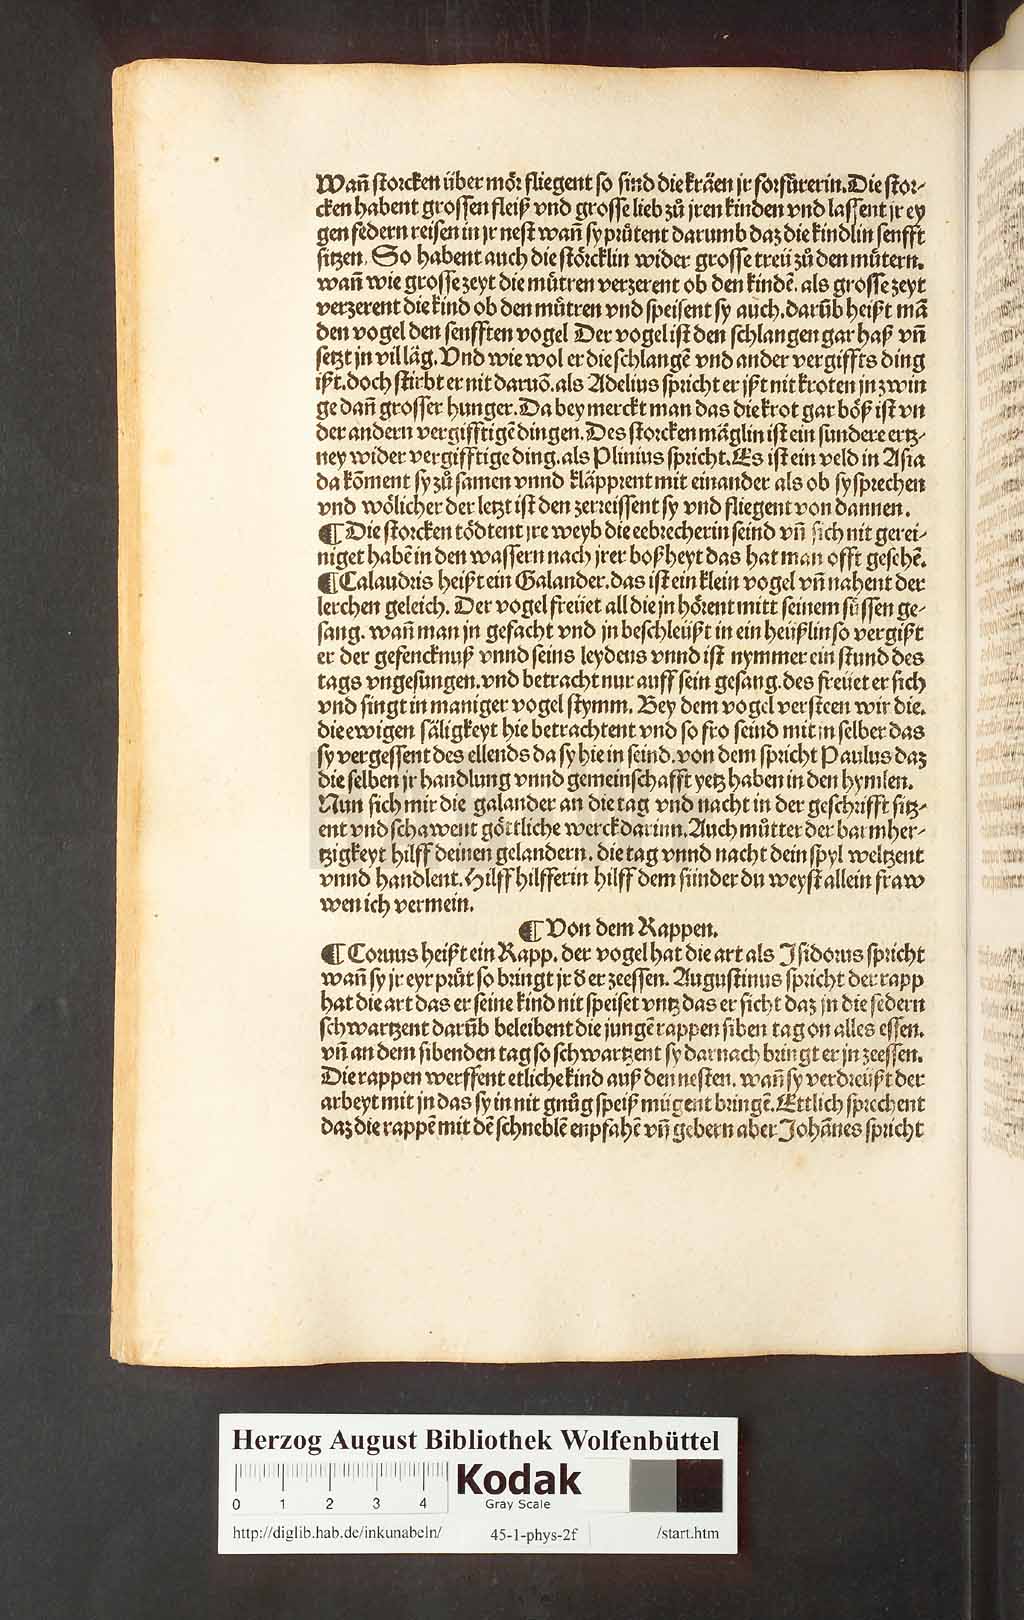 Wañ storcken über mör fliegent so sind die kräen jr forfürerin. Die stor-
cken habent grossen fleiß vnd grosse lieb zů jren kinden vnd lassent jr ey
gen federn reisen in jr nest wañ sy průtent darumb daz die kindlin senfft
sitzen. So habent auch die störcklin wider grosse treü zů den můtern.
wañ wie grosse zeyt die můtren verzerent ob den kindē. als grosse zeyt
verzerent die kind ob den můtren vnd speisent sy auch. darūb heißt mā
den vogel den senfften vogel Der vogel ist den schlangen gar haß vñ
setzt jn vil läg. Vnd wie wol er die schlangē vnd ander vergiffts ding
ißt. doch stirbt er nit daruō. als Adelius spricht er jßt nit kroten jn zwin
ge dañ grosser hunger. Da bey merckt man das die krot gar böß ist vn
der andern vergifftigē dingen. Des storcken mäglin ist ein sundere ertz-
ney wider vergifftige ding. als Plinius spricht. Es ist ein veld in Asia
da kōment sy zů samen vnnd kläpprent mit einander als ob sy sprechen
vnd wölicher der letzt ist den zerreissent sy vnd fliegent von dannen.
¶ Die storcken tödtent jre weyb die eebrecherin seind vñ sich nit gerei-
niget habē in den wassern nach jrer boßheyt das hat man offt gesehē.
¶ Calaudris heißt ein Galander. das ist ein klein vogel vñ nahent der
lerchen geleich. Der vogel freüet all die jn hörent mitt seinem süssen ge-
sang. wañ man jn gefacht vnd jn beschleüßt in ein heüßlin so vergißt
er der gefencknuß vnnd seins leydens vnnd ist nymmer ein stund des
tags vngesungen. vnd betracht nur auff sein gesang. des freüet er sich
vnd singt in maniger vogel stymm. Bey dem vogel versteen wir die.
die ewigen säligkeyt hie betrachtent vnd so fro seind mit in selber das
sy vergessent des ellends da sy hie in seind. von dem spricht Paulus daz
die selben jr handlung vnnd gemeinschafft yetz haben in den hymlen.
Nun sich mir die galander an die tag vnd nacht in der geschrifft sitz-
ent vnd schawent göttliche werck darinn. Auch můtter der barmher-
tzigkeyt hilff deinen gelandern. die tag vnnd nacht dein spyl weltzent
vnnd handlent. Hilff hilfferin hilff dem sünder du weyst allein fraw
wen ich vermein.
¶ Von dem Rappen.
¶ Coruus heißt ein Rapp. der vogel hat die art als Jsidorus spricht
wañ sy jr eyr průt so bringt jr d er ze essen. Augustinus spricht der rapp
hat die art das er seine kind nit speiset vntz das er sicht daz jn die federn
schwartzent darūb beleibent die jungē rappen siben tag on alles essen.
vñ an dem sibenden tag so schwartzent sy darnach bringt er jn ze essen.
Die rappen werffent etliche kind auß den nesten. wañ sy verdreüßt der
arbeyt mit jn das sy in nit gnůg speiß mügent bringē. Ettlich sprechent
daz die rappē mit dē schneblē enpfahē vñ gebern aber Johānes spricht
Herzog August Bibliothek Wolfenbüttel
0 1 2 3 4
Kodak
Gray Scale
http://diglib.hab.de/inkunabeln/ 45-1-phys-2f /start.htm